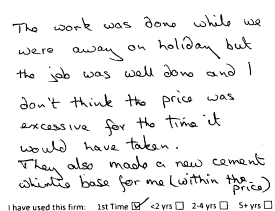 The work was done while we
were away on holiday but
the job was well done and I
don't think the price was
excessive for the time it
would have taken.
They also made a new cement
base for me (within the
price)
I have used this firm: 1st Time ☑ <2 yrs ☐ 2-4 yrs ☐ 5+ yrs ☐